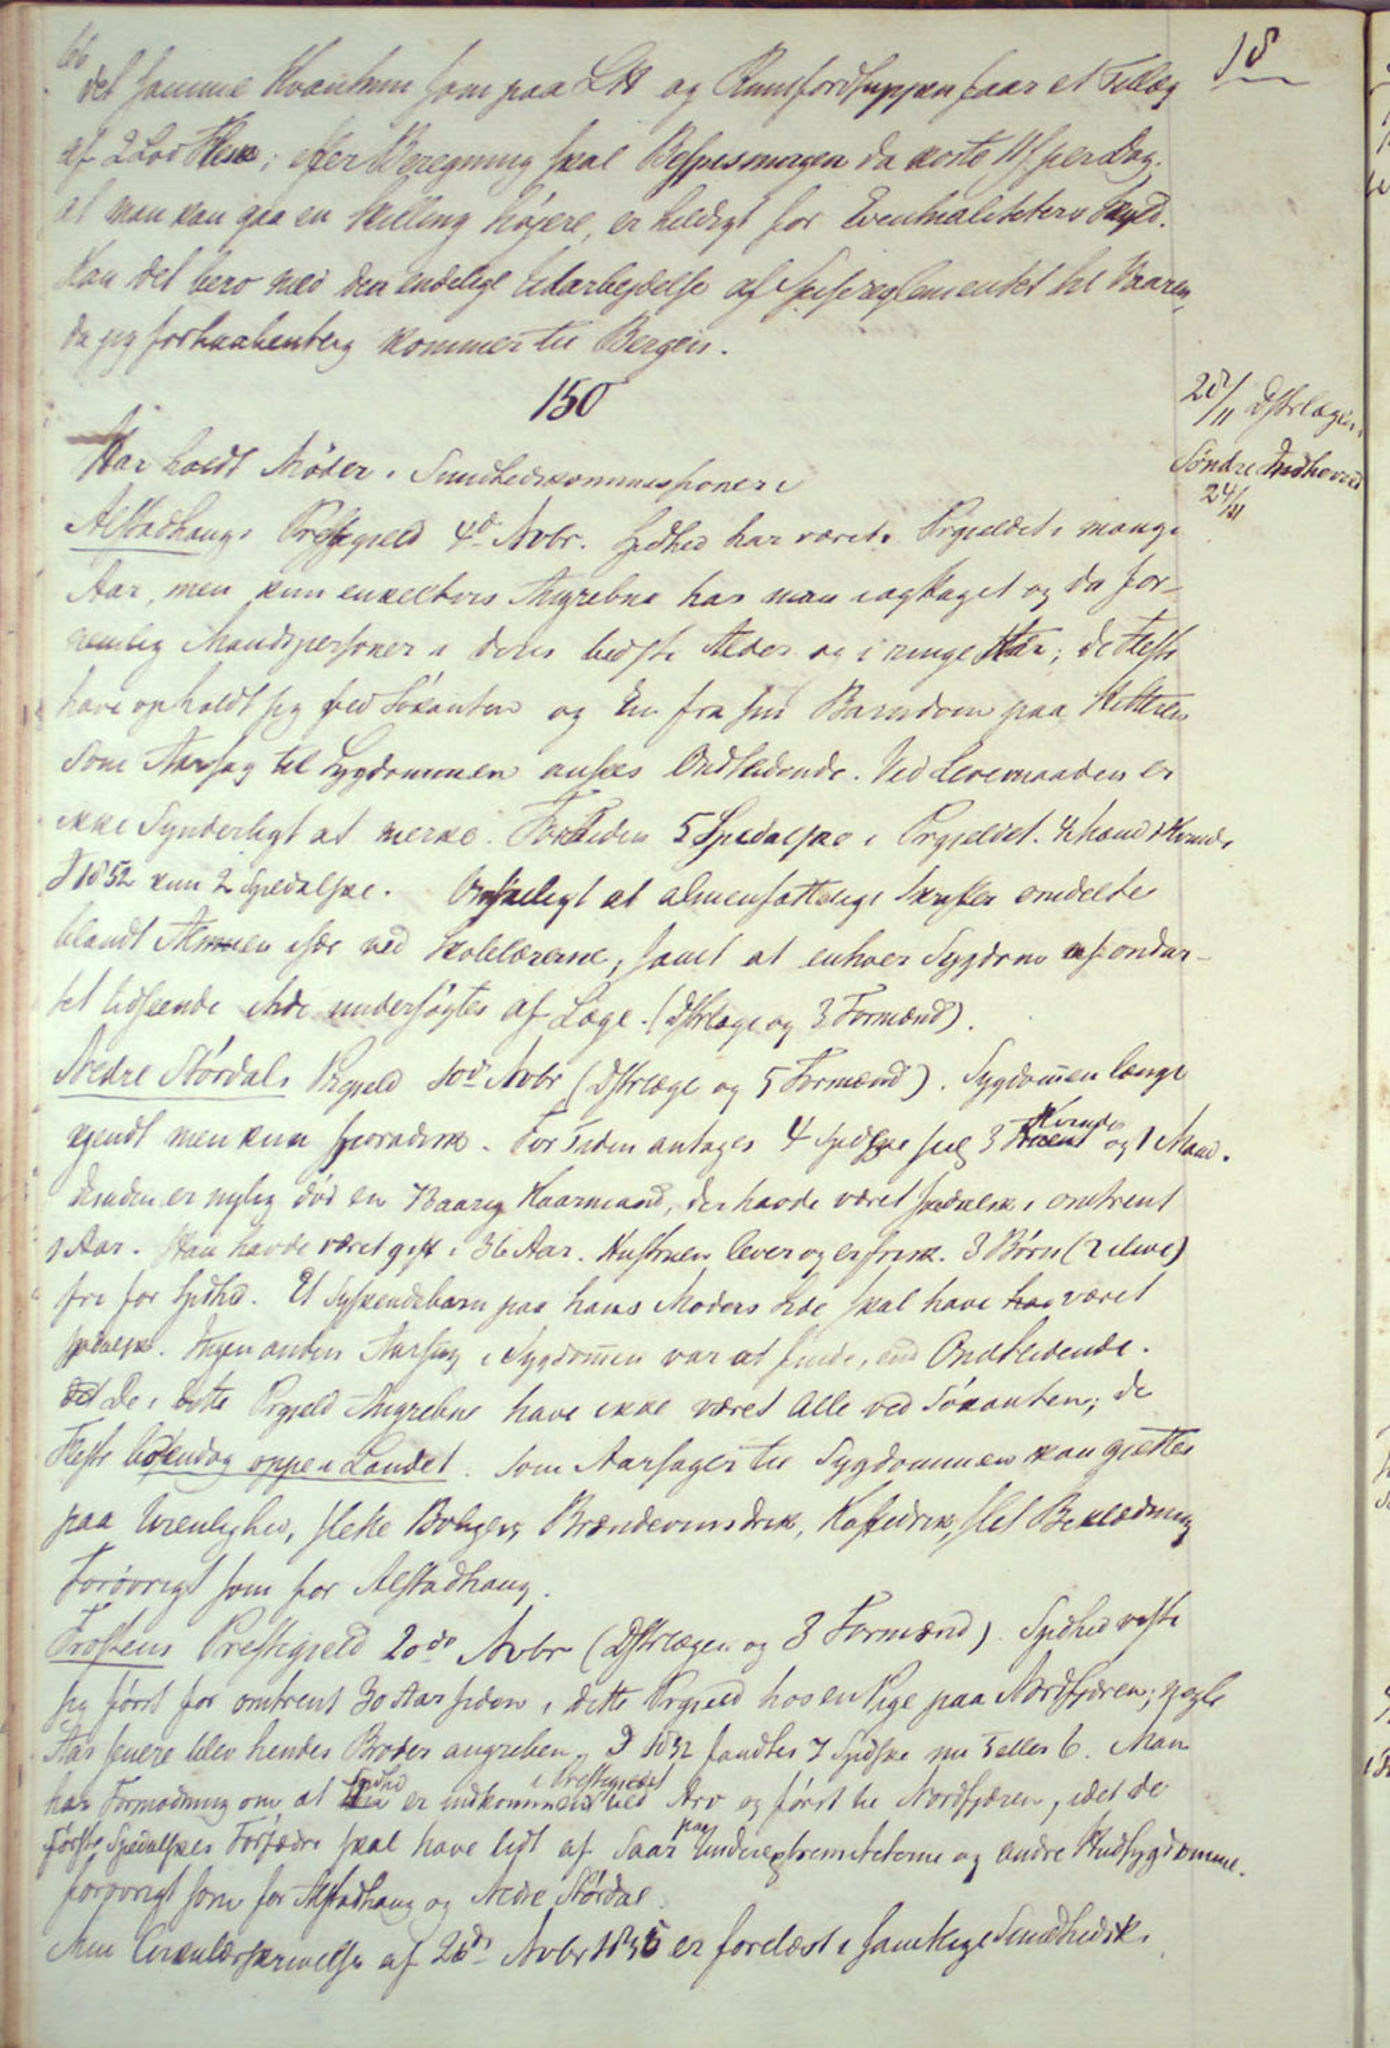 66
18
det samme Kvantum som paa LH og Rumfordsuppen faar et Tillæg
af 2 Lod Flesk; efter Beregning skal Bespisningen da koste 11 s per Dag.
at man kan gaa en Skilling højere, er heldigt for Eventualiteters Skyld.
Kan det bero med den endelige Udarbejdelse af Spisereglementet til Vaaren,
da jeg forhaabentlig kommer til Bergen.
150
28/11 Dstrlægen,
Søndre Indherred
24/11
Har holdt Møder i Sundhedskommissioner i
Alstadhaugs Prestegjeld 4de Nvbr. Spdhed har været i Prgjeldet i mange
Aar, men kun enkeltvis Angrebne har man iagttaget og da for-
nemlig Mandspersoner i deres bedste Alder og i ringe Kår; de Fleste
have opholdt sig ved Søkanten og En fra sin Barndom paa Hitteren
Som Aarsag til Sygdommen ansees Ondtlidende. Ved Levemaaden er
ikke Synderligt at merke. For Tiden 5 Spedalske i Prgjeldet. 4 Mænd 1 Kvinde,
I 1852 kun 2 Spedalske. Ønskeligt at almenfattelige Skrifter omdeltes
blandt Almuen især ved Skolelærerne, samt at enhver Sygdom af ondar-
tet Udseende strax undersøgtes af Læge. (Dstrlæge og 3 Formænd).
Nedre Størdals Prgjeld 10de Nvbr (Dstrlæge og 5 Formænd). Sygdommen længe
kjendt men kun sporadisk. For Tiden antages 4 Spedske sig 3 Kvinder og 1 Mand.
desuden er nylig død en 73aarig Kaarmand, der havde været spedalsk i omtrent
1 Aar. Han havde været gift i 36 Aar. Hustruen lever og er frisk. 3 Børn (2 ilive)
fri for Spdhed. Et Syskendebarn paa hans Moders Side skal have har været
spedalsk. Ingen anden Aarsag i Sygdommen var at finde, end Ondtlidende.
det De i dette Prgjeld Angrebne have ikke været Alle ved Søkanten; de
Fleste boendog oppe i Landet. Som Aarsager til Sygdommen kan gjettes
paa Urenlighed, slette Boliger, Brændevinsdrik, Kaffedrik, slet Beklædning
Forøvrigt som for Alstadhaug.
Frostens Prestegjeld 20de Nvbr (Dstrlægen og 3 Formænd). Spdhed viste
sig først for omtrent 30 Aar siden i dette Prgjeld hos en Pige paa Nordfjæren; nogle
Aar senere blev hendes Broder angreben. I 1852 fandtes 7 Spdske nu 5 eller 6. Man
har Formodning om, at Spdhed er indkommen i Prestegjeldet ved Arv og først til Nordfjæren, idet de
første Spedalskes Forfædre skal have lidt af Saar paa Underextremiteterne og andre Hudsygdomme.
forøvrigt som for Alstadhaug og Nedre Størdal.
Min Cirkulærskrivelse af 26de Nvbr 1855 er forelæst i samtlige Sundhedsk.